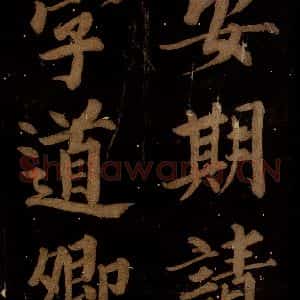 安期請
字道卿
Shufawang.CN